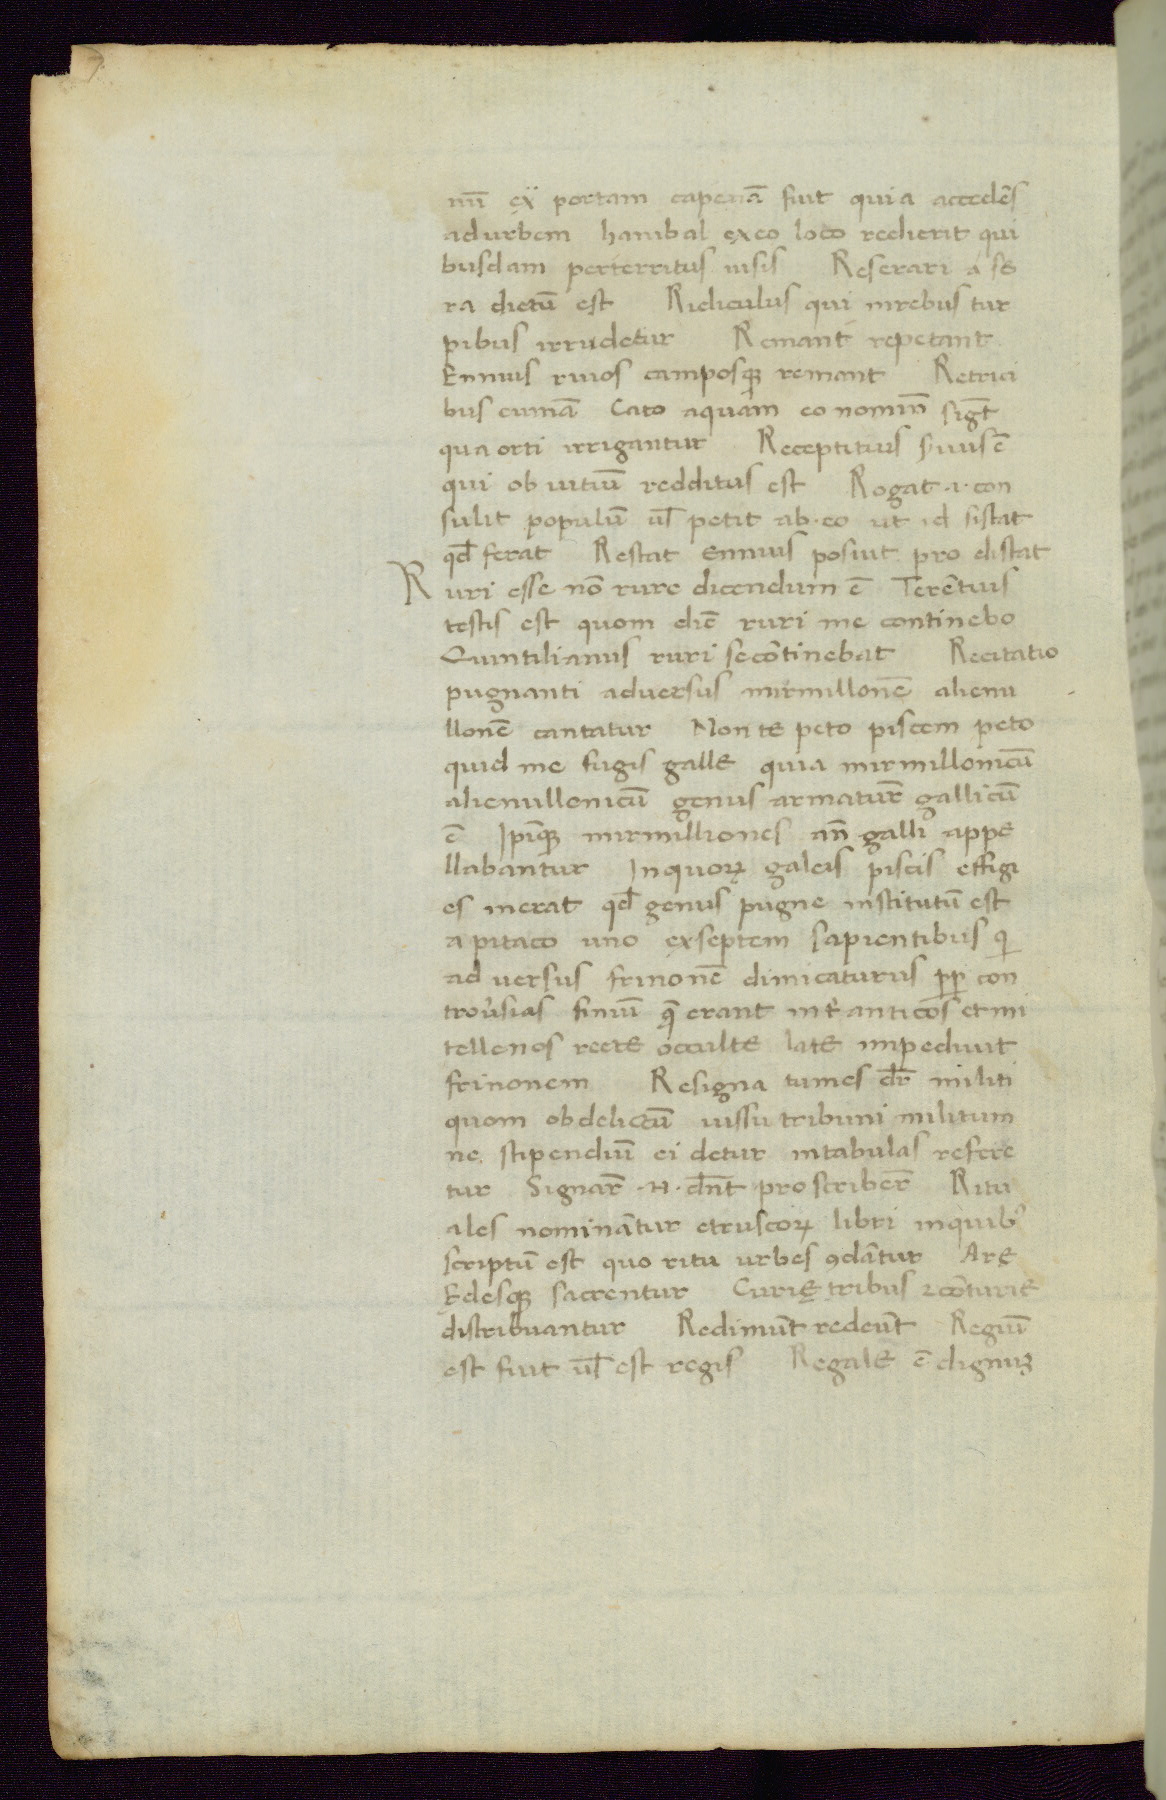 nū ex̄ portam capenā fuit quia accedēs
ad urbem hanibal ex eo loco redierit qui
busdam perterritus uisis Reserari a se
ra dictū est Ridiculus qui in rebus tur
pibus irridetur Remant repetant
Ennius riuos camposq; remant Retrici
bus cumā Cato aquam eo nomin̄ sigt̄
qua orti irrigantur Receptitius suus ē
qui ob uitiū redditus est Rogat ·i· con
sulit populū ul̄ petit ab eo ut id sistat
qd̄ ferat Restat Ennius posuit pro distat
Ruri esse nō rure dicendum ē Terētius
testis est quom diē ruri me continebo
Quintilianus ruri se cōtinebat Recitatio
pugnanti aduersus mirmillonē alienu
llonē cantatur Non te peto piscem peto
quid me fugis galle quia mirmillonicū
alienullonicū genus armatur̄ gallicū
ē Ipīq; mirmilliones an̄ galli appe
llabantur In quoꝝ galeis piscis effigi
es inerat qd̄ genus pugne institutū est
a pitaco uno ex septem sapientibus qͥ
ad uersus frinonē dimicaturus ꝓꝑ con
trou̓sias finiū q̄ erant int̄ anticos et mi
tellenos recte occulte late impediuit
frinonem Resigna tum es dr̄ militi
quom ob delictū iussu tribuni militum
ne stipendiū ei detur in tabulas refere
tur Signar̄ ·N· dn̄t proscriber̄ Ritu
ales nominātur etruscoꝝ libri in quibꝰ
scriptū est quo ritu urbes ꝯdātur Arę
Edesq; sacrentur Curię tribus ⁊ cōturie
distribuantur Redimūt redeūt Regiū
est fuit ul̄ est regis Regale ē dignuꝫ